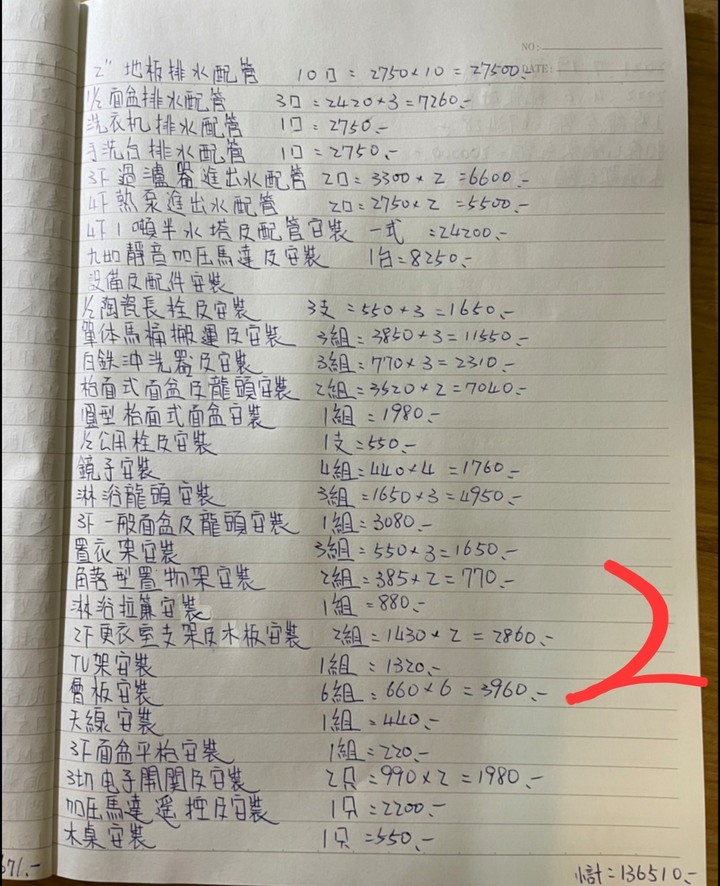 NO:
DATE:
2" 地板排水配管 10口 = 2750×10 = 27500.-
1/2 面盆排水配管 3口 = 2420×3 = 7260.-
洗衣机排水配管 1口 = 2750.-
手洗台排水配管 1口 = 2750.-
3F 過濾器進出水配管 2口 = 3300×2 = 6600.-
4F 熱泵進出水配管 2口 = 2750×2 = 5500.-
4F 1噸半水塔及配管安裝 一式 = 24200.-
九如靜音加圧馬達及安裝 1台 = 8250.-
設備及配件安裝
1/2 陶瓷長栓及安裝 3支 = 550×3 = 1650.-
單体馬桶搬運及安裝 3組 = 3850×3 = 11550.-
白鉄冲洗器及安裝 3組 = 770×3 = 2310.-
枱面式面盆及龍頭安裝 2組 = 3520×2 = 7040.-
圓型枱面式面盆安裝 1組 = 1980.-
1/2 公用栓及安裝 1支 = 550.-
鏡子安裝 4組 = 440×4 = 1760.-
淋浴龍頭安裝 3組 = 1650×3 = 4950.-
3F 一般面盆及龍頭安裝 1組 = 3080.-
置衣架安裝 3組 = 550×3 = 1650.-
角落型置物架安裝 2組 = 385×2 = 770.-
淋浴拉簾安裝 1組 = 880.-
2F 更衣室支架及木板安裝 2組 = 1430×2 = 2860.-
TV架安裝 1組 = 1320.-
層板安裝 6組 = 660×6 = 3960.-
天線安裝 1組 = 440.-
3F 面盆平枱安裝 1組 = 220.-
3切电子開關及安裝 2只 = 990×2 = 1980.-
加圧馬達遥控及安裝 1只 = 2200.-
木桌安裝 1只 = 550.-
小計 = 136510.-
2
671.-